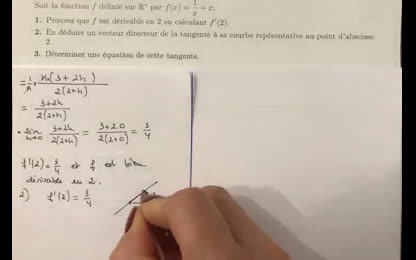 Soit la fonction f définie sur ℝ* par f(x) = 1/x + x.
1. Prouvez que f est dérivable en 2 en calculant f'(2).
2. En déduire un vecteur directeur de la tangente à sa courbe repésentative au point d'abscisse
2.
3. Déterminez une équation de cette tangente.
= 1/h × h(3+2h) / 2(2+h)
= 3+2h / 2(2+h)
• lim h→0 3+2h / 2(2+h) = 3+2.0 / 2(2+0) = 3/4
f'(2) = 3/4 et f est bien
dérivable en 2.
2) f'(2) = 3/4